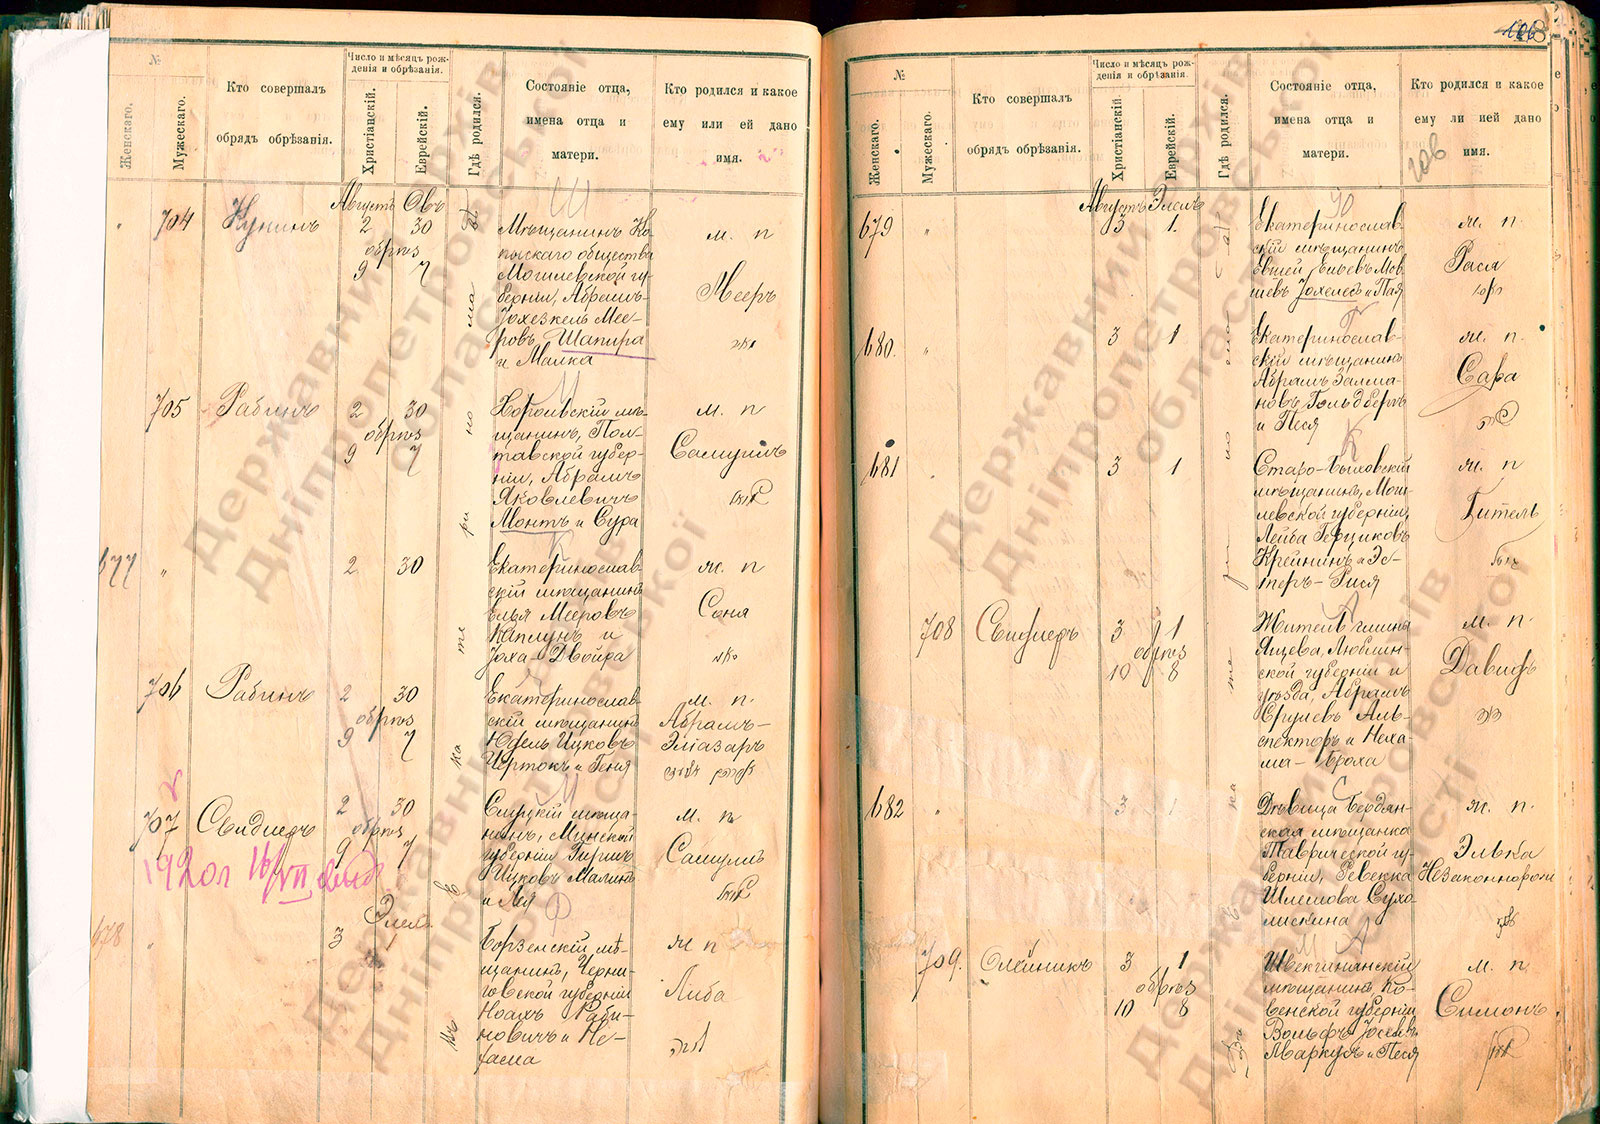 №
Женскаго.
Мужескаго.
Кто совершалъ
обрядъ обрѣзанія.
Число и мѣсяцъ рож-
денія и обрѣзанія.
Христіанскій.
Еврейскій.
Гдѣ родился.
Состояніе отца,
имена отца и
матери.
Кто родился и какое
ему или ей дано
имя.
Августъ Овъ
704 Кунинъ 2 30
обрѣз
9 7
Мѣщанинъ Ко-
пыскаго общества
Могилевской гу-
берніи, Абрамъ-
Іохезкель Мее-
ровъ Шапира
и Малка
м. п
Мееръ
705 Рабинъ 2 30
обрѣз
9 7
Хорольскій мѣ-
щанинъ, Пол-
тавской губер-
ніи, Абрамъ
Яковлевичъ
Монтъ и Сура
м. п
Самуилъ
677 " 2 30
Екатеринослав-
скій мѣщанинъ
Елья Мееровъ
Каплунъ и
Іоха-Двойра
ж. п
Соня
706 Рабинъ 2 30
обрѣз
9 7
Екатеринослав-
скій мѣщанинъ
Юдель Ицковъ
Чертокъ и Геня
м. п.
Абрамъ-
Эліазаръ
707 Свидлеръ 2 30
обрѣз
9 7
Слуцкій мѣща-
нинъ, Минской
губерніи Гиршъ
Ицковъ Малинъ
и Лея
м. п
Самуилъ
1920 г 16/VII выд
Элелъ
678 " 3 1
Борзенскій мѣ-
щанинъ, Черни-
говской губерніи
Ноахъ Раби-
новичъ и Не-
хама
ж п
Либа
въ Екатеринослав
106
№
Женскаго.
Мужескаго.
Кто совершалъ
обрядъ обрѣзанія.
Число и мѣсяцъ рож-
денія и обрѣзанія.
Христіанскій.
Еврейскій.
Гдѣ родился.
Состояніе отца,
имена отца и
матери.
Кто родился и какое
ему ли ией дано
имя.
Августъ Элелъ
679 " 3 1.
Екатеринослав-
скій мѣщанинъ
Мов-
шевъ Іохелесъ и Пая
ж. п.
Рася
680. " 3 1
Екатеринослав-
скій мѣщанинъ
Абрамъ Залма-
новъ Гольдбергъ
и Песя
ж. п.
Сара
681 3 1
Старо-Быховскій
мѣщанинъ, Моги-
левской губерніи,
Лейба Герциковъ
Крейнинъ и Эс-
теръ-Рися
ж. п
Гитель
708 Свидлеръ 3 1
обрѣз
10 8
Житель гмина
Яцева, Люблин-
ской губерніи и
уѣзда, Абрамъ
Сруловъ Аль-
спекторъ и Неха-
ма-Броха
м. п.
Давидъ
682 " 3 1
Дѣвица Бердян-
ская мѣщанка
Таврической гу-
берніи, Ревекка
Шлемова Сухо-
лискина
ж. п.
Элька
Незаконнорожд
709. Олейникъ 3 1
обрѣз
10 8
мѣщанинъ, Ко-
венской губерніи,
Вольфъ Іоселевъ
Маркусъ и Песя
м. п.
Симонъ.
Державний архів
Дніпропетровської
області